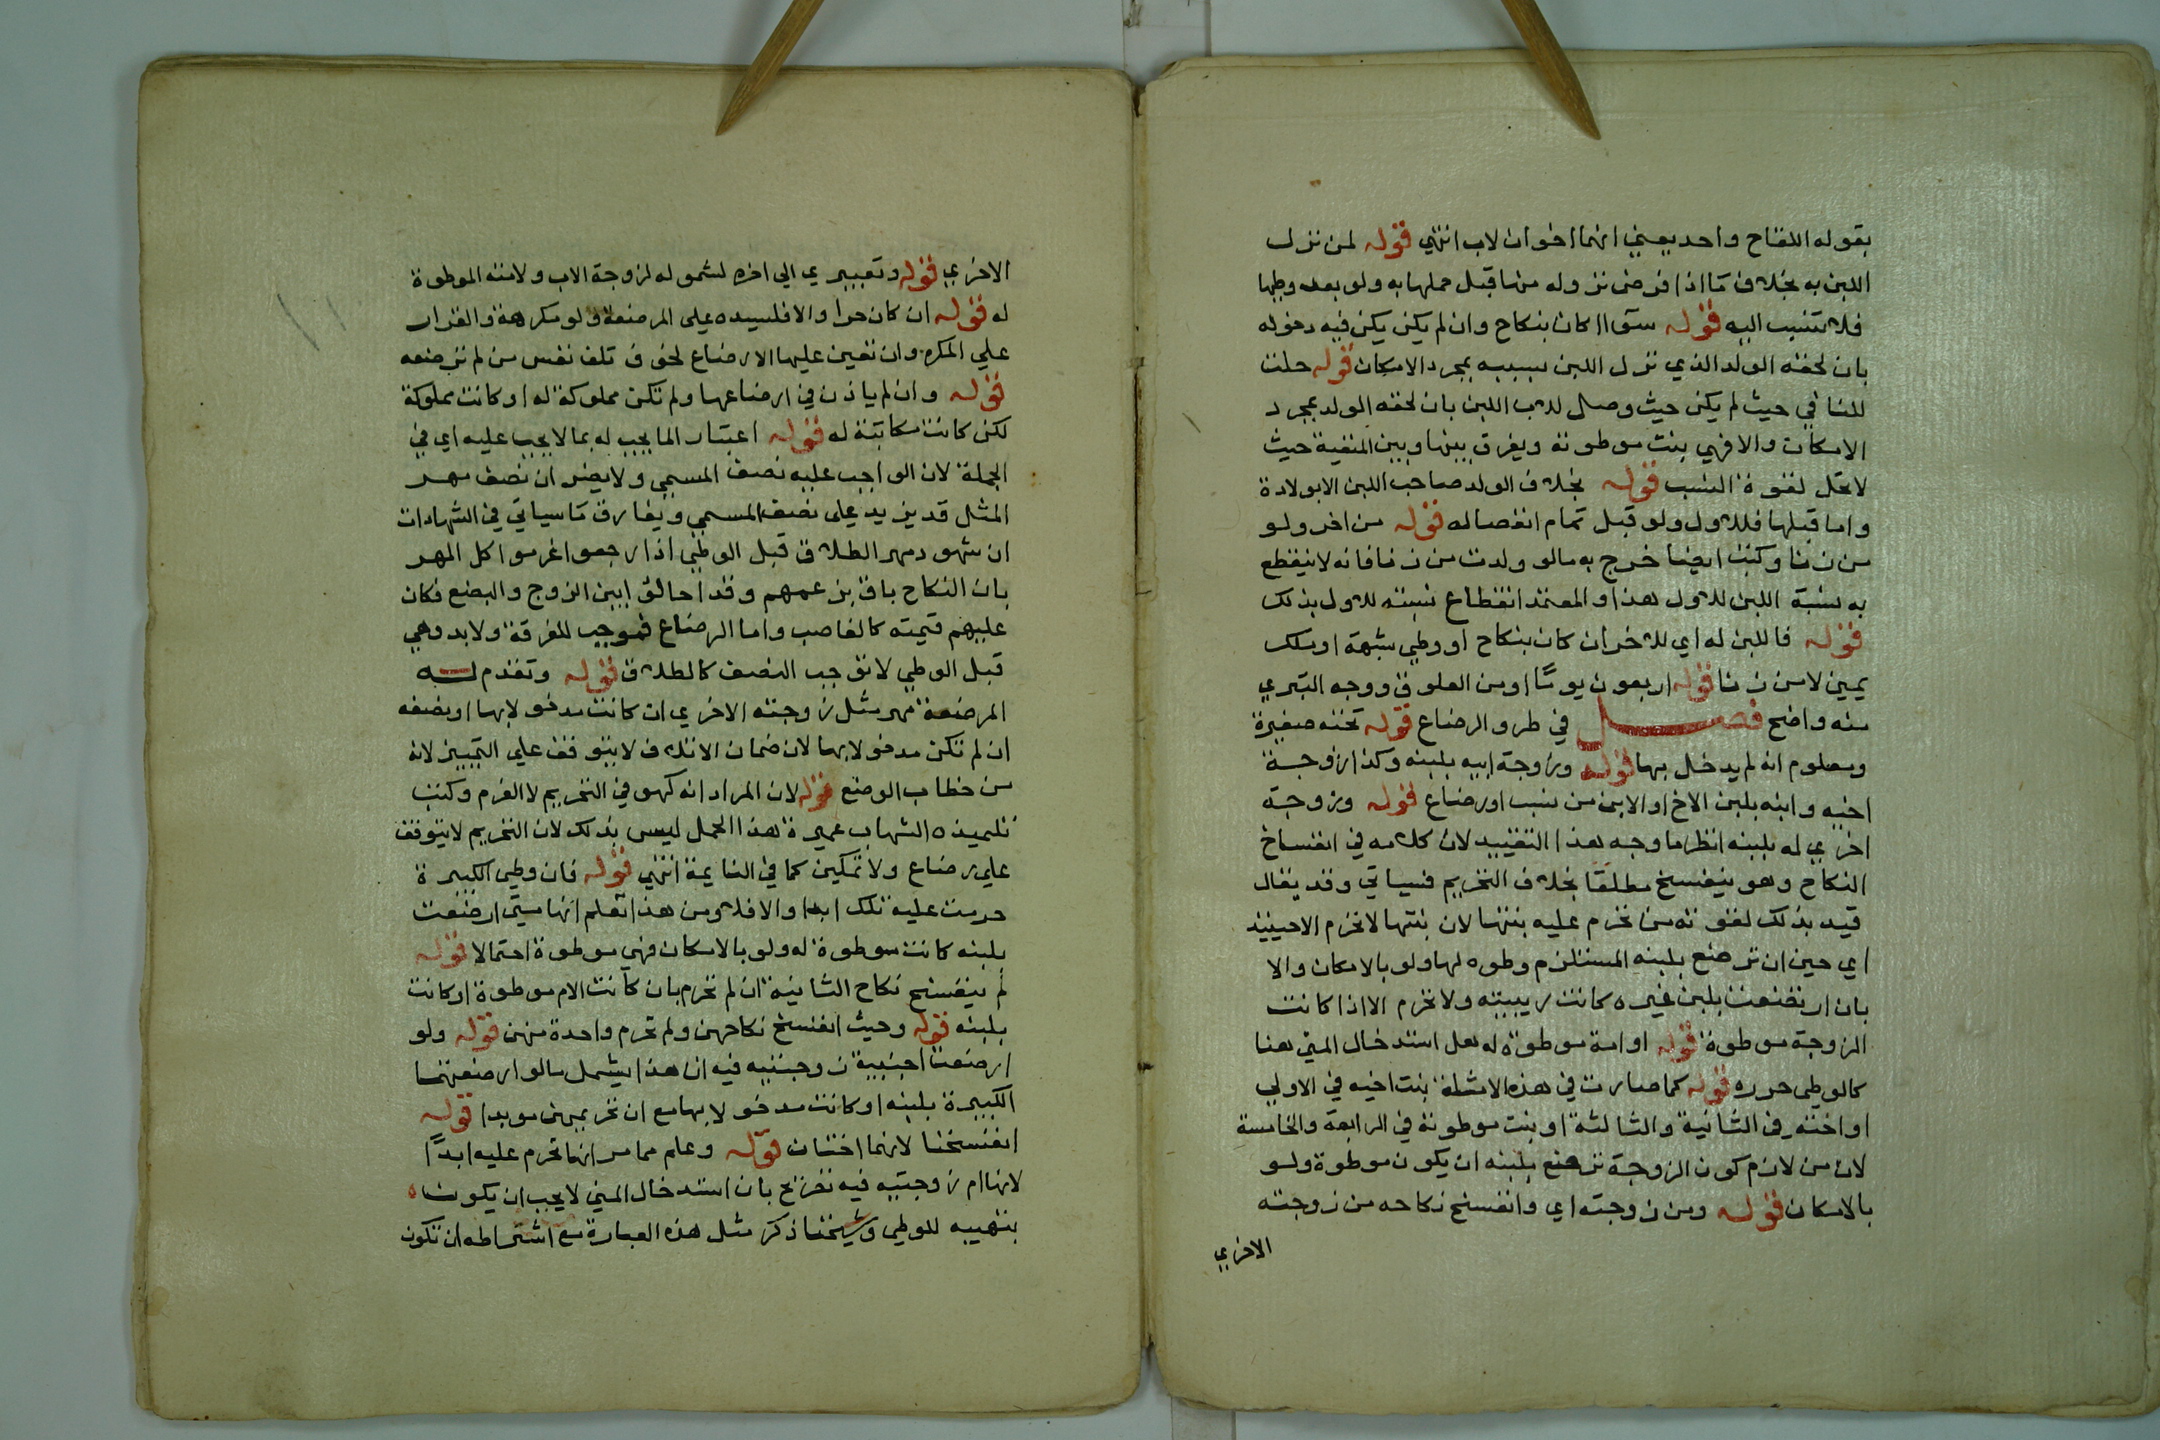 بقوله اللقاح واحد يعني انهما اخوان لاب انتهي قوله لمن نزل
اللبن به بخلاف ما اذا فرض نزوله منها قبل حملها به ولو بعد وطيها
فلا تنسب اليه قوله سوآا كان بنكاح وان لم يكن يكن فيه دخوله
بان لحقه الولد الذي نزل اللبن بسببه بمجرد الامكان قوله حلت
للنافي حيث لم يكن حيث وصل لذب اللبن بان لحقه الولد بمجرد
الامكان والا فهي بنت موطوته ويفرق بينها وبين المنفية حيث
لا تحل لقوة النسب قوله بخلاف الولد صاحب اللبن الا بولادة
واما قبلها فللاول ولو قبل تمام انفصاله قوله من اخر ولو
من زنا وكتب ايضا خرج به ما لو ولدت من زنا فانه لا ينقطع
به نسبة اللبن للاول هذا والمعتمد انقطاع نسبته للاول بذلك
قوله فاللبن له اي للاخر ان كان بنكاح او وطي شبهة او ملك
يمين لا من زنا قوله اربعون يومًا او من العلوق ووجه التبري
منه واضح فصل في طرو الرضاع قوله تحته صغيرة
ومعلوم انه لم يدخل بها قوله وزوجة ابيه بلبنه وكذا زوجة
اخيه وابنه بلبن الاخ او الابن من نسب او رضاع قوله وزوجة
اخري له بلبنه انظر ما وجه هذا التقييد لان كلامه في انفساخ
النكاح وهو ينفسخ مطلقا بخلاف التحريم فسياتي وقد يقال
قيد بذلك لقوته من تحرم عليه بنتها لان بنتها لا تحرم الا حينيذ
اي حين ان ترضع بلبنه المستلزم وطوه لها ولو بالامكان والا
بان ارتضعت بلبن غيره كانت ربيبته ولا تحرم الا اذا كانت
الزوجة موطوة قوله او امة موطوة له هل استدخال المني هنا
كالوطي حرره قوله كما صارت في هذه الامثلة بنت اخيه في الاولي
او اخته في الثانية والثالثة او بنت موطوته في الرابعة والخامسة
لان من لازم كون الزوجة ترضع بلبنه ان يكون موطوة ولو
بالامكان قوله ومن زوجته اي وانفسخ نكاحه من زوجته
الاخري
الاخري قوله وتعبيري الي اخره لشموله لزوجة الاب ولامته الموطوة
له قوله ان كان حرا والا فلسيده على المرضعة ولو مكرهة والقرار
علي المكره وان تعين عليها الارضاع لخوف تلف نفس من لم ترضعه
قوله وان لم ياذن في ارضاعها ولم تكن مملوكة له او كانت مملوكة
لكن كانت مكاتبة له قوله اعتبارا لما يجب له بما لا يجب عليه اي في
الجملة لان الواجب عليه نصف المسمي ولا يضر ان نصف مهر
المثل قد يزيد على نصف المسمي ويفارق ما سياتي في الشهادات
ان شهود مهر الطلاق قبل الوطي اذا رجعوا غرموا كل المهر
بان النكاح باق بزعمهم وقد احالوا بين الزوج والبضع فكان
عليهم قيمته كالغاصب واما الرضاع فموجب للفرقة ولا بد وهي
قبل الوطي لا توجب النصف كالطلاق قوله وتقدم له
المرضعة مهر مثل زوجته الاخري ان كانت مدخولا بها او نصفه
ان لم تكن مدخولا بها لان ضمان الاتلاف لا يتوقف علي التمييز لانه
من خطاب الوضع قوله لان المراد انه كهو في التحريم لا الغرم وكتب
تلميذه الشهاب عميرة هذا الحمل ليس بذلك لان التحريم لا يتوقف
علي رضاع ولا تمكين كما في النايمة انتهي قوله فان وطي الكبيرة
حرمت عليه تلك ابدا والا فلا ومن هذا تعلم انها متي ارضعت
بلبنه كانت موطوة له ولو بالامكان فهي موطوة احتمالا قوله
لم ينفسخ نكاح الثانية ان لم تحرم بان كانت الام موطوة او كانت
بلبنه قوله وحيث انفسخ نكاحهن ولم تحرم واحدة منهن قوله ولو
ارضعت اجنبية زوجتيه فيه ان هذا يشمل ما لو ارضعتهما
الكبيرة بلبنه او كانت مدخولا بها مع ان تحريمهن موبدا قوله
انفسختا لانهما اختان قوله وعلم مما مر انها تحرم عليه ابدًا
لانها ام زوجتيه فيه تصريح بان استدخال المني لا يجب ان يكون
بنتهيه للوطي وشيخنا ذكر مثل هذه العبارة مع اشتراطه ان تكون